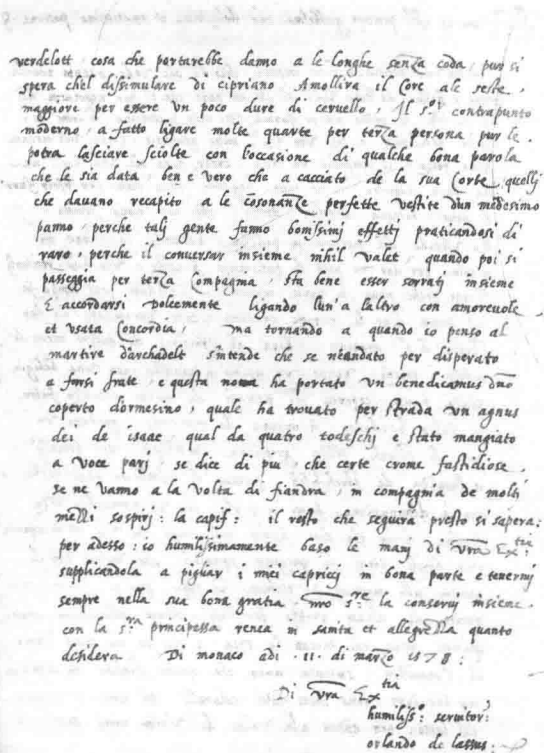 verdelott cosa che portarebbe danno a le longhe senza coda, pur si
spera chel dissimulare di cipriano Amollira il Core ale seste,
maggiore per essere un poco dure di ceruello, Il s.or contrapunto
moderno, a fatto ligare molte quarte per terza persona, pur le
potra lasciare sciolte con l'occasione di qualche bona parola
che le sia data, ben e vero che a cacciato de la sua Corte, quellj
che dauano recapito a le cosonanze perfette vestite d'un medesimo
panno, perche talj gente fanno bonissimj effettj praticandosi di
raro, perche il conuersar insieme nihil valet, quando poi si
passeggia per terza Compagnia, sta bene esser serratj insieme
E accordarsi dolcemente ligando lun'a laltro con amoreuole
et usata Concordia, ma tornando a quando io penso al
martire d'archadelt s'intende che se neandato per disperato
a farsi frate, e questa noua ha portato un benedicamus dno
coperto d'ormesino, quale ha trouato per strada un agnus
dei de isaac qual da quatro todeschj e stato mangiato
a voce parj, se dice di piu, che certe crome fastidiose,
se ne vanno a la volta di fiandra, in compagnia de molti
mezzi sospirj: la capis: il resto che seguira presto si sapera:
per adesso: io humilissimamente baso le manj di vra Ex.tia
supplicandola a pigliar i miei capricij in bona parte e tenermj
sempre nella sua bona gratia, nro s.re la conseruj insieme,
con la s.ra principessa renea in sanita et allegrezza quanto
desidera Di monaco adi .11. di marzo 1578:
Di vra Ex.tia
humiliss.o seruitor:
orlando de lassus: